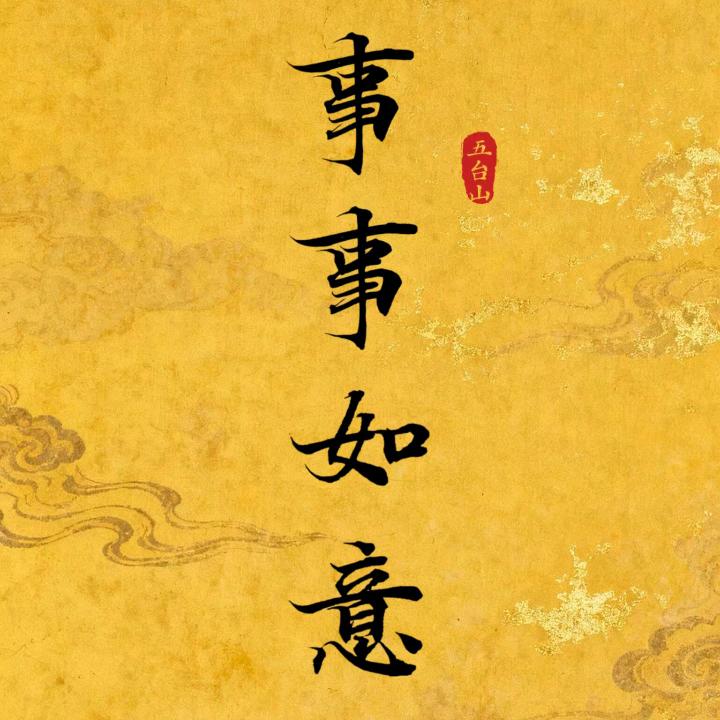 事事如意
五台山